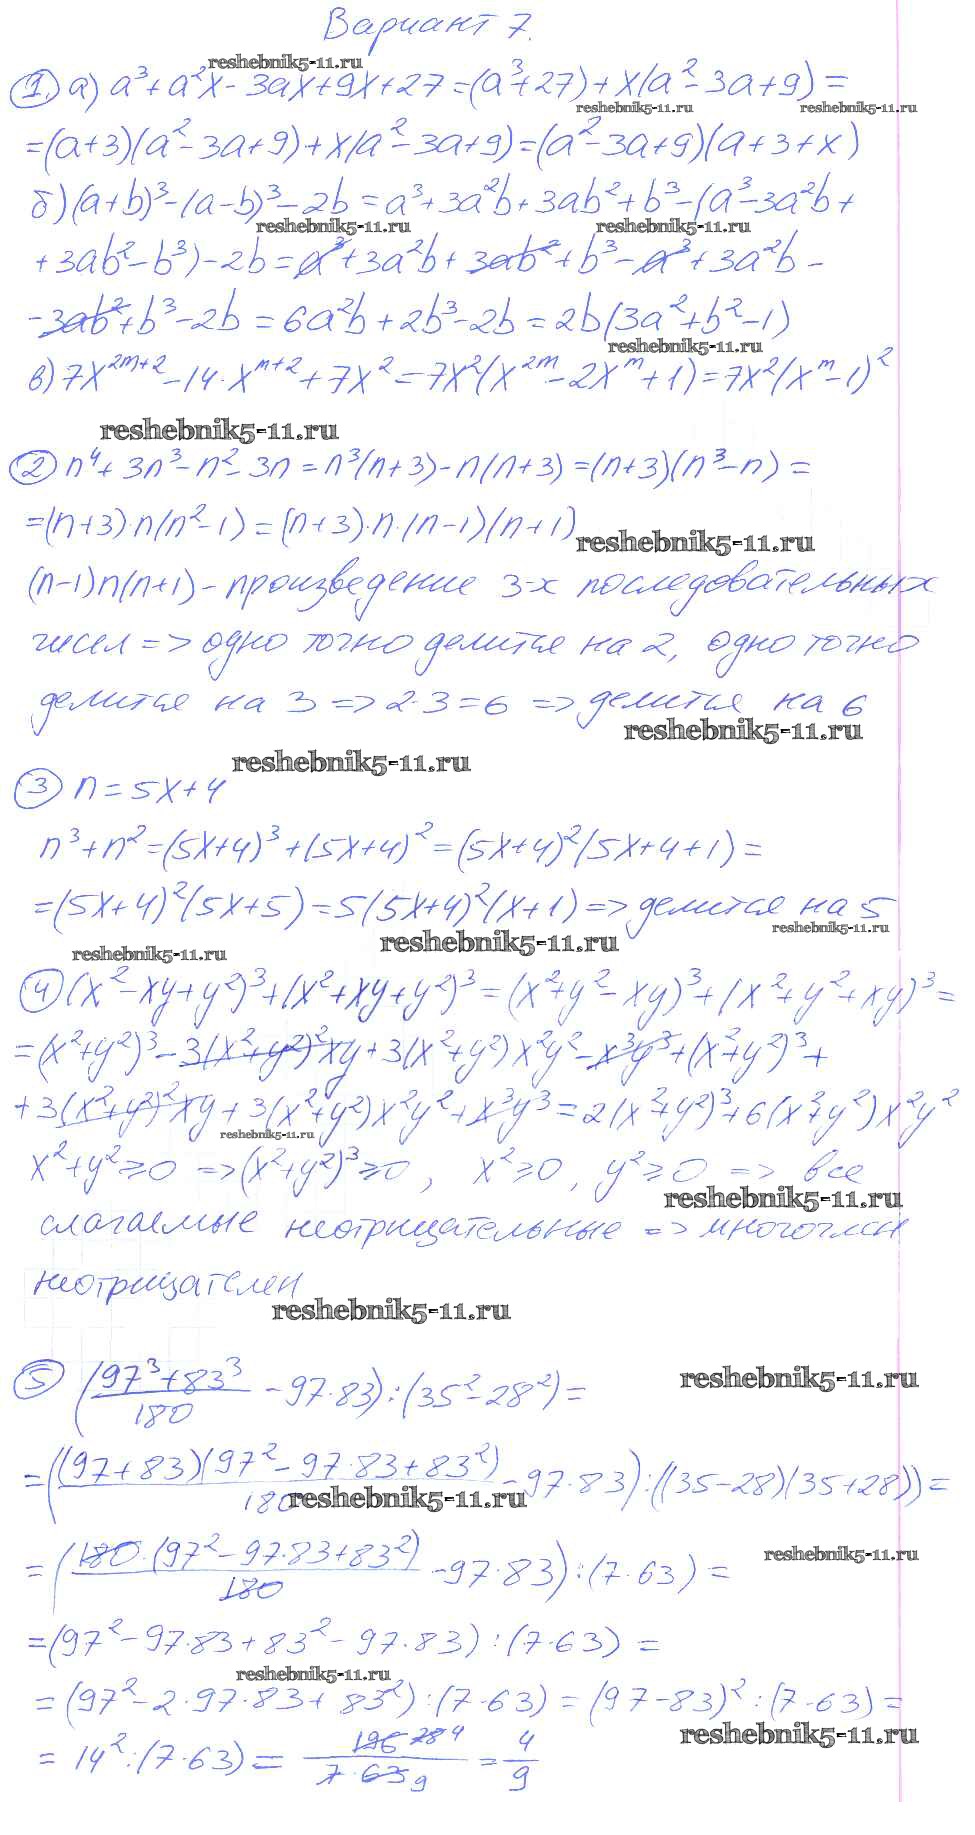 Вариант 7.
reshebnik5-11.ru
① а) a³ + a²x - 3ax + 9x + 27 = (a³ + 27) + x(a² - 3a + 9) =
reshebnik5-11.ru reshebnik5-11.ru
= (a+3)(a² - 3a + 9) + x(a² - 3a + 9) = (a² - 3a + 9)(a + 3 + x)
б) (a+b)³ - (a-b)³ - 2b = a³ + 3a²b + 3ab² + b³ - (a³ - 3a²b +
reshebnik5-11.ru reshebnik5-11.ru
+ 3ab² - b³) - 2b = a³ + 3a²b + 3ab² + b³ - a³ + 3a²b -
- 3ab² + b³ - 2b = 6a²b + 2b³ - 2b = 2b(3a² + b² - 1)
reshebnik5-11.ru
в) 7x²ᵐ⁺² - 14·xᵐ⁺² + 7x² = 7x²(x²ᵐ - 2xᵐ + 1) = 7x²(xᵐ - 1)²
reshebnik5-11.ru
② n⁴ + 3n³ - n² - 3n = n³(n+3) - n(n+3) = (n+3)(n³ - n) =
= (n+3)·n(n² - 1) = (n+3)·n·(n-1)(n+1)
reshebnik5-11.ru
(n-1)n(n+1) - произведение 3-х последовательных
чисел => одно точно делится на 2, одно точно
делится на 3 => 2·3=6 => делится на 6
reshebnik5-11.ru
reshebnik5-11.ru
③ n = 5x + 4
n³ + n² = (5x+4)³ + (5x+4)² = (5x+4)²(5x+4+1) =
= (5x+4)²(5x+5) = 5(5x+4)²(x+1) => делится на 5
reshebnik5-11.ru
reshebnik5-11.ru reshebnik5-11.ru
④ (x² - xy + y²)³ + (x² + xy + y²)³ = (x² + y² - xy)³ + (x² + y² + xy)³ =
= (x² + y²)³ - 3(x² + y²)²xy + 3(x² + y²)x²y² - x³y³ + (x² + y²)³ +
+ 3(x² + y²)²xy + 3(x² + y²)x²y² + x³y³ = 2(x² + y²)³ + 6(x² + y²)x²y²
reshebnik5-11.ru
x² + y² ≥ 0 => (x² + y²)³ ≥ 0, x² ≥ 0, y² ≥ 0 => все
reshebnik5-11.ru
слагаемые неотрицательные => многочлен
неотрицателен
reshebnik5-11.ru
⑤ ((97³ + 83³)/180 - 97·83) : (35² - 28²) =
reshebnik5-11.ru
= (((97+83)(97² - 97·83 + 83²))/180 - 97·83) : ((35-28)(35+28)) =
reshebnik5-11.ru
= ((180·(97² - 97·83 + 83²))/180 - 97·83) : (7·63) =
reshebnik5-11.ru
= (97² - 97·83 + 83² - 97·83) : (7·63) =
reshebnik5-11.ru
= (97² - 2·97·83 + 83²) : (7·63) = (97-83)² : (7·63) =
reshebnik5-11.ru
= 14² : (7·63) = 196 28 4/7·63 9 = 4/9